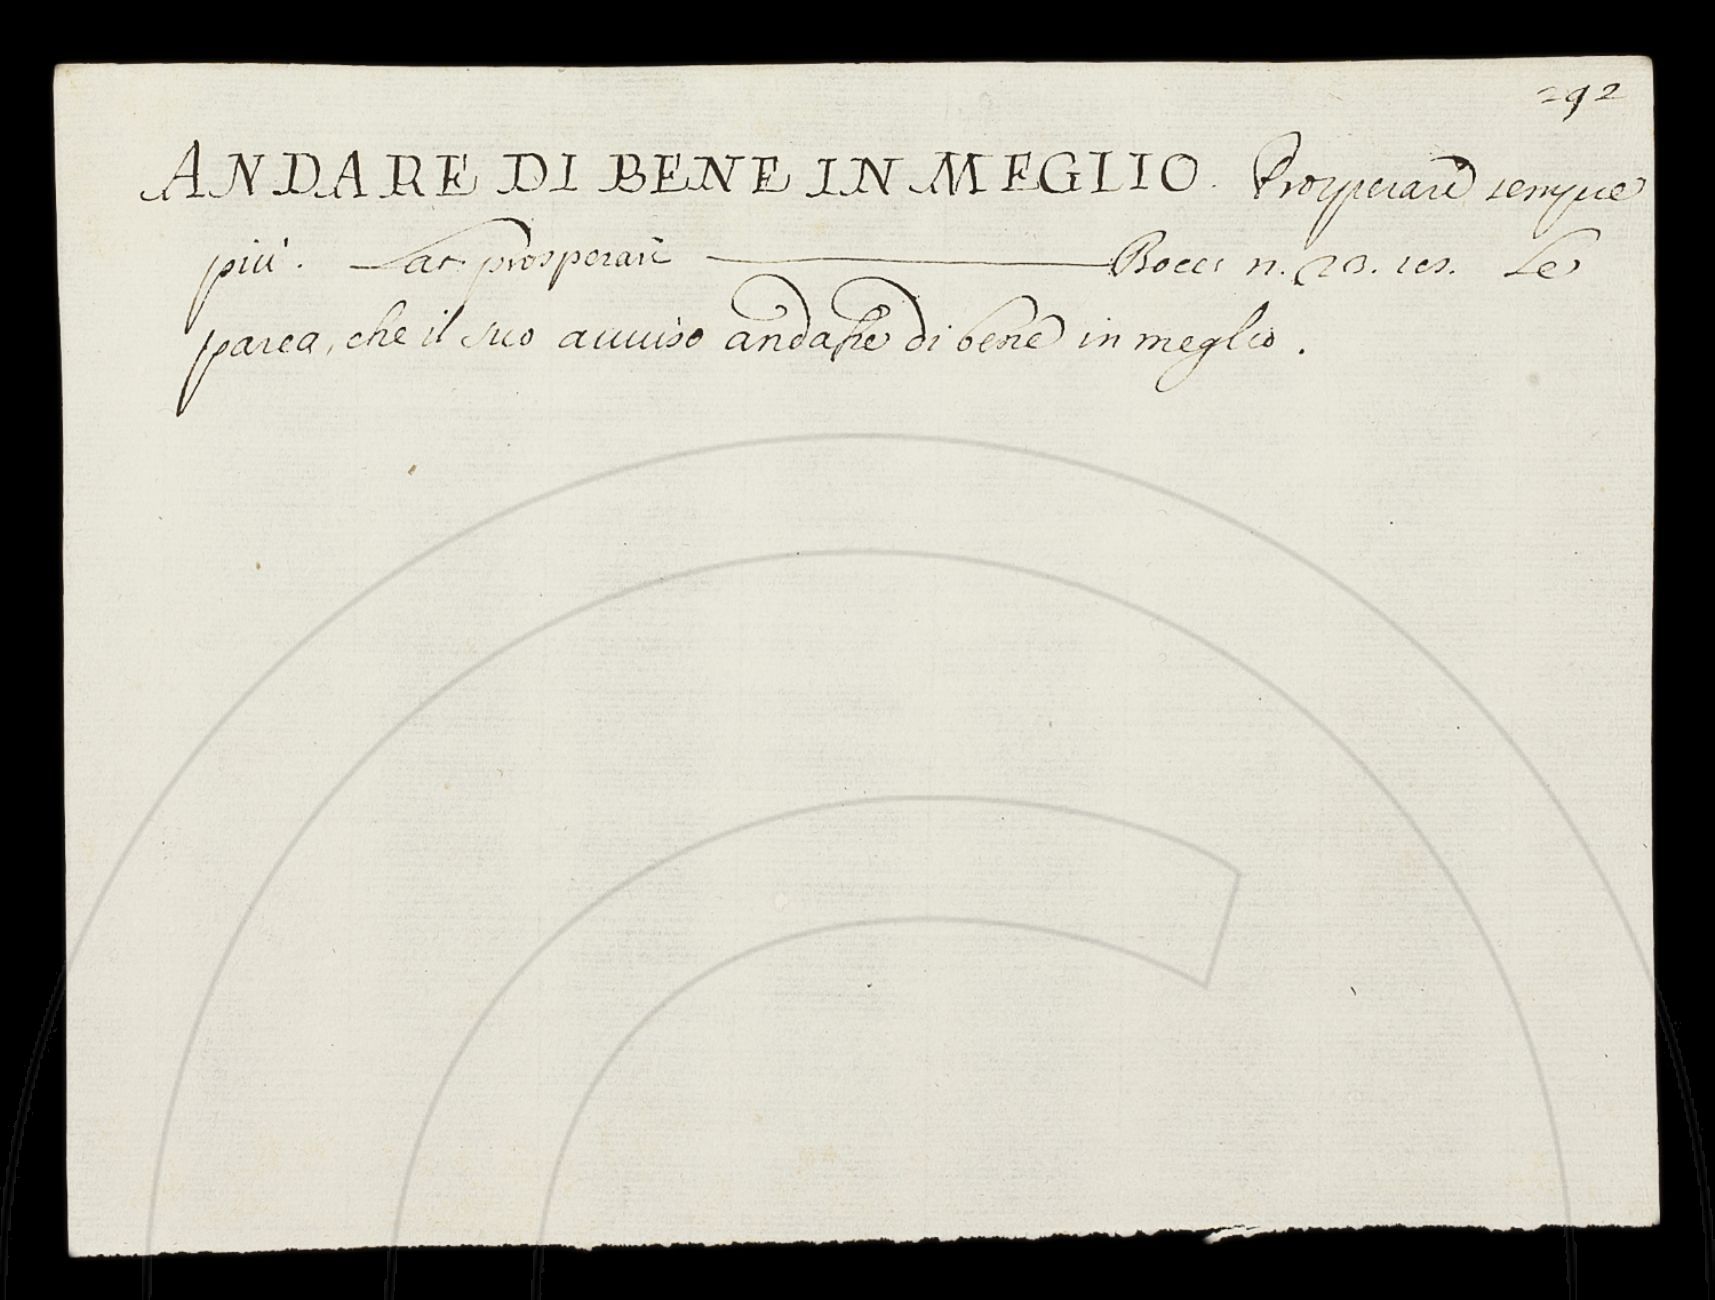 292
ANDARE DI BENE IN MEGLIO. Prosperare sempre
più. Lat. prosperare Bocc. n. 23.
parea, che il suo auuiso andasse di bene in meglio.